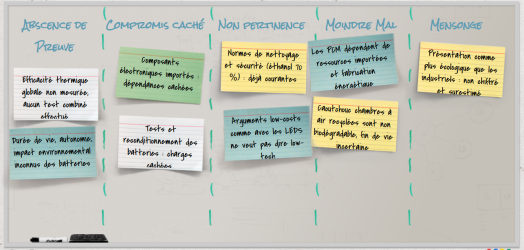 Absence de
Preuve
Compromis caché
Non pertinence
Moindre Mal
Mensonge
Efficacité thermique
globale non mesurée,
aucun test combiné
effectué
Durée de vie, autonomie,
impact environnemental
inconnus des batteries
Composants
électroniques importés :
dépendances cachées
Tests et
reconditionnement des
batteries : charges
cachées
Normes de nettoyage
et sécurité (éthanol 70
%) : déjà courantes
Arguments low-costs
comme avec les LEDS
ne veut pas dire low-
tech
Les PDM dépendent de
ressources importées
et fabrication
énergétique
Caoutchouc chambres à
air recyclées sont non
biodégradable, fin de vie
incertaine
Présentation comme
plus écologique que les
industriels : non chiffré
et surestimé